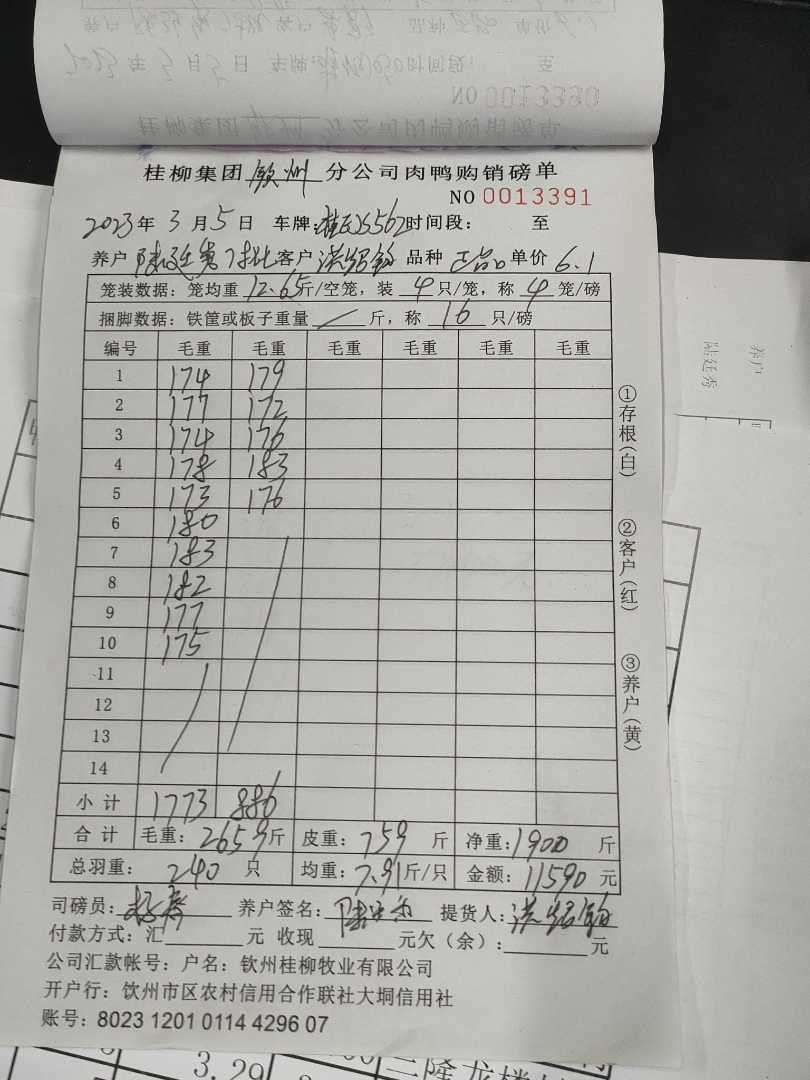 NO 0013390
桂柳集团钦州分公司肉鸭购销磅单
NO 0013391
2023年3月5日 车牌: 时间段: 至
养户 客户 品种 正品 单价 6.1
笼装数据：笼均重 12.65 斤/空笼，装 4 只/笼，称 4 笼/磅
捆脚数据：铁筐或板子重量 / 斤，称 16 只/磅
编号 毛重 毛重 毛重 毛重 毛重 毛重
1 174 179
2 177 172
3 174 176
4 178 183
5 173 176
6 180
7 183
8 182
9 177
10 175
11
12
13
14
小计 1773 886
合计 毛重：2659斤 皮重：759 斤 净重：1900 斤
总羽重： 240 只 均重：7.91斤/只 金额：11590 元
司磅员： 养户签名： 提货人：
付款方式：汇 元 收现 元欠（余）： 元
公司汇款帐号：户名：钦州桂柳牧业有限公司
开户行：饮州市区农村信用合作联社大垌信用社
账号：8023 1201 0114 4296 07
①存根(白)
②客户(红)
③养户(黄)
养户
陆廷秀
3.29